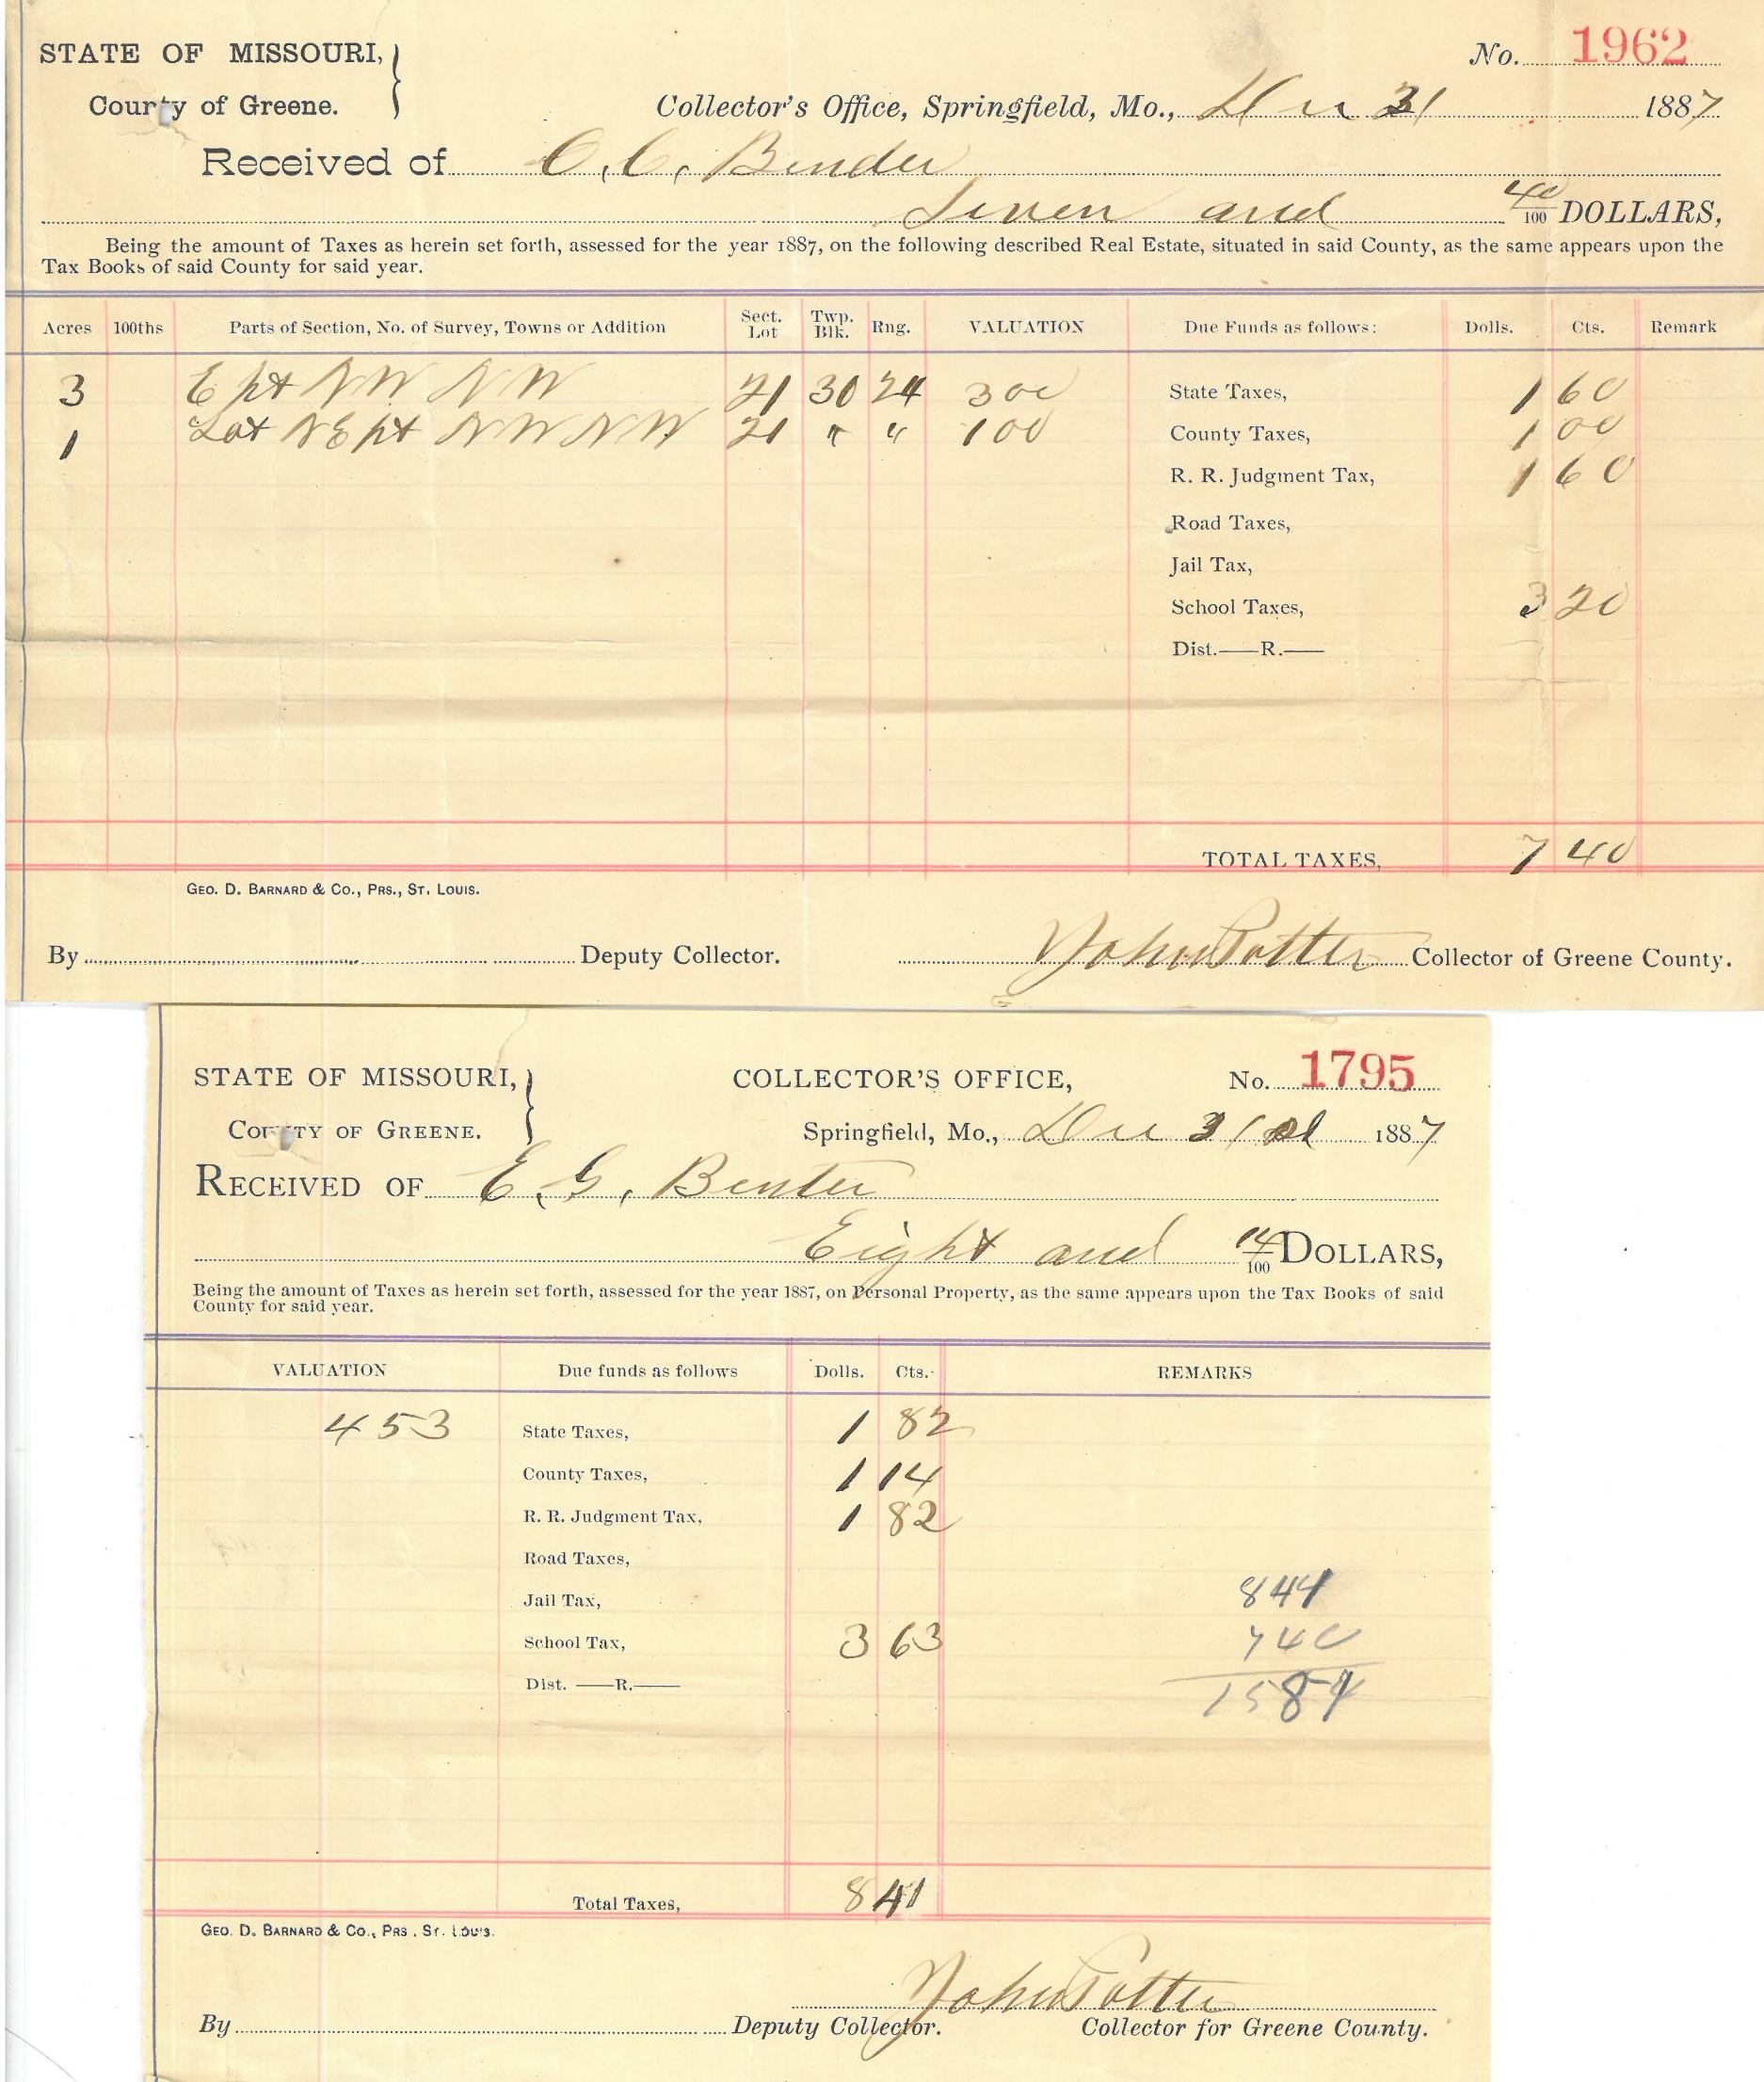 STATE OF MISSOURI,
No. 1962
County of Greene.
Collector's Office, Springfield, Mo., Dec 31 1887
Received of C. C. Bender
Seven and 40/100 DOLLARS,
Being the amount of Taxes as herein set forth, assessed for the year 1887, on the following described Real Estate, situated in said County, as the same appears upon the
Tax Books of said County for said year.
Acres 100ths Parts of Section, No. of Survey, Towns or Addition Sect. Lot Twp. Blk. Rng. VALUATION Due Funds as follows: Dolls. Cts. Remark
3 E pt NW NW 21 30 24 300 State Taxes, 1 60
1 Lot NE pt NW NW 21 " " 100 County Taxes, 1 00
R. R. Judgment Tax, 1 60
Road Taxes,
Jail Tax,
School Taxes, 3 20
Dist.——R.——
TOTAL TAXES, 7 40
GEO. D. BARNARD & CO., PRS., ST. LOUIS.
By Deputy Collector. John Potter Collector of Greene County.
STATE OF MISSOURI, COLLECTOR'S OFFICE, No. 1795
COUNTY OF GREENE. Springfield, Mo., Dec 31st 1887
RECEIVED OF E. G. Benter
Eight and /100 DOLLARS,
Being the amount of Taxes as herein set forth, assessed for the year 1887, on Personal Property, as the same appears upon the Tax Books of said
County for said year.
VALUATION Due funds as follows Dolls. Cts. REMARKS
453 State Taxes, 1 82
County Taxes, 1 14
R. R. Judgment Tax, 1 82
Road Taxes,
Jail Tax, 844
School Tax, 3 63 740
Dist. ——R.—— 1584
Total Taxes, 8 41
GEO. D. BARNARD & CO., PRS. ST. LOUIS.
John Potter
By Deputy Collector. Collector for Greene County.